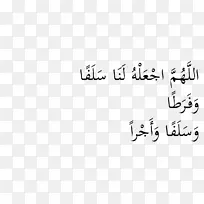 اللَّهُمَّ اجْعَلْهُ لَنَا سَلَفًا
وَفَرَطًا
وَسَلَفًا وَأَجْراً